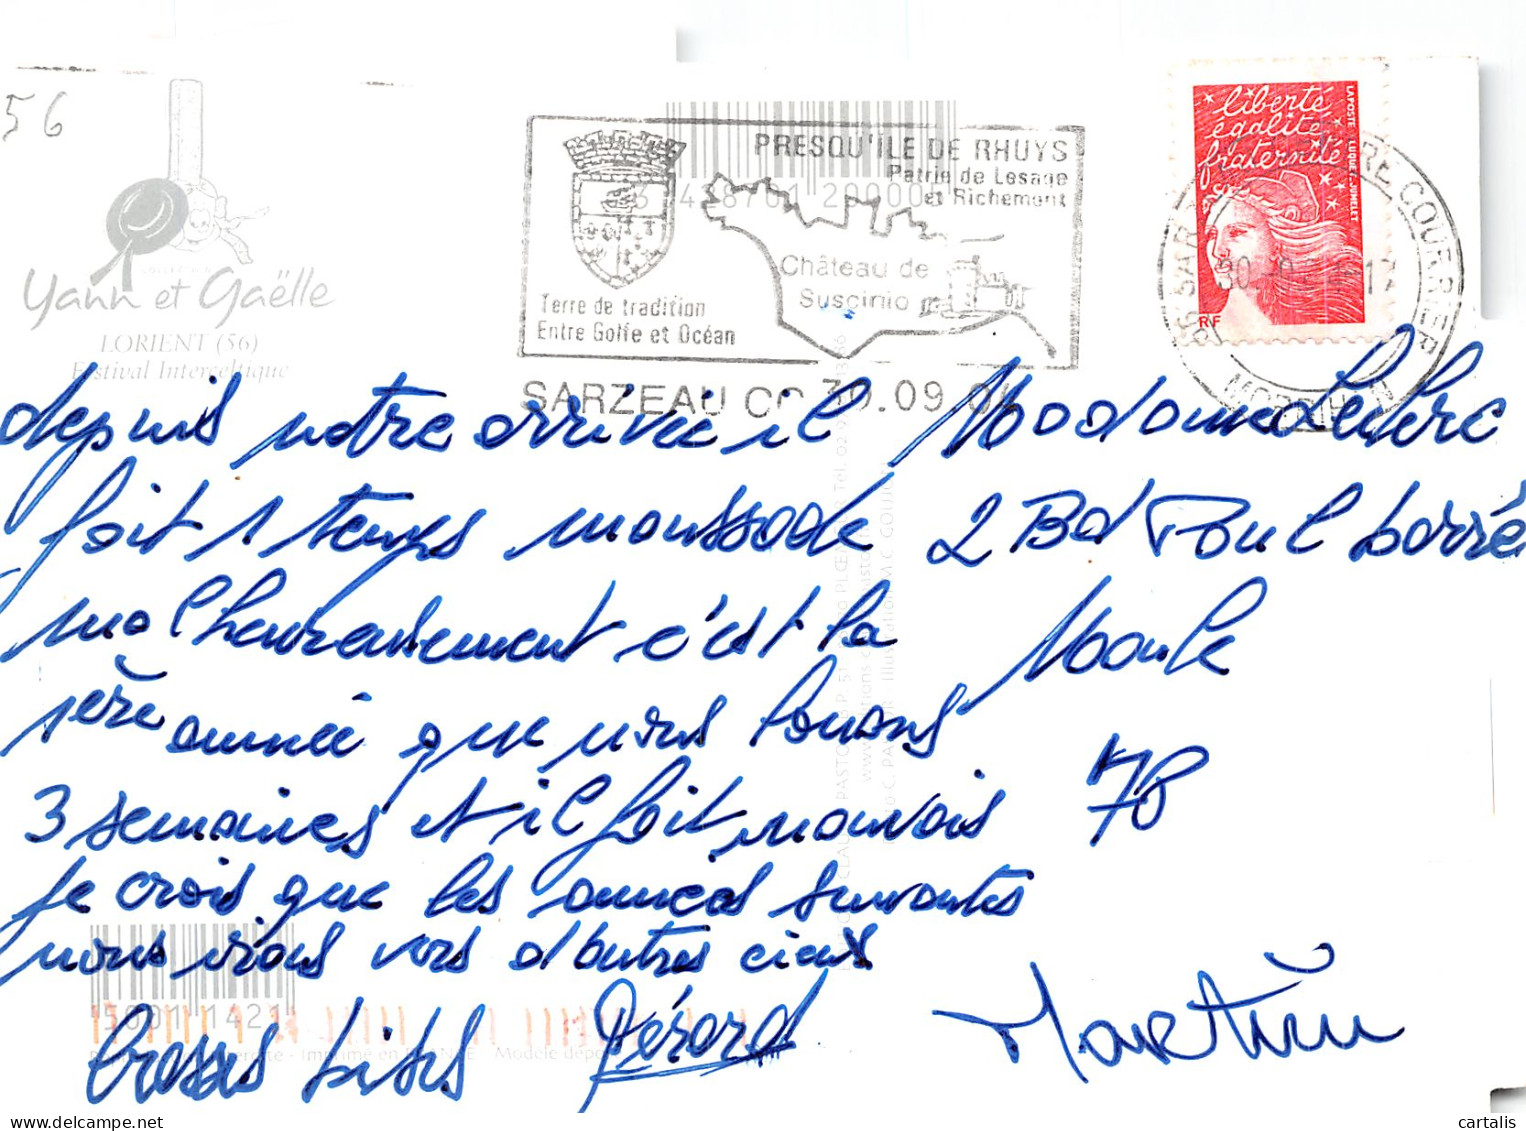 56
liberté
égalité
fraternité
LA POSTE LUQUET/JUMELET
RF
PRESQU'ILE DE RHUYS
Patrie de Lesage
et Richemont
Château de
Suscinio
Terre de tradition
Entre Golfe et Océan
SARZEAU CC 30.09.04
56 SARZEAU
COURRIER
MORBIHAN
Yann et Gaëlle
LORIENT (56)
Festival Interceltique
depuis notre arrivée il
fait 1 temps moussade
malheureusement c'est la
1ère année que nous louons
3 semaines et il fait mauvais
je crois que les années suivantes
nous irons vers d'autres cieux
Grosses bises Gérard
Martine
Madame Leclerc
2 Bd Paul barré
Maule
78
5001142
Imprimé en FRANCE - Modèle déposé
cartalis.com